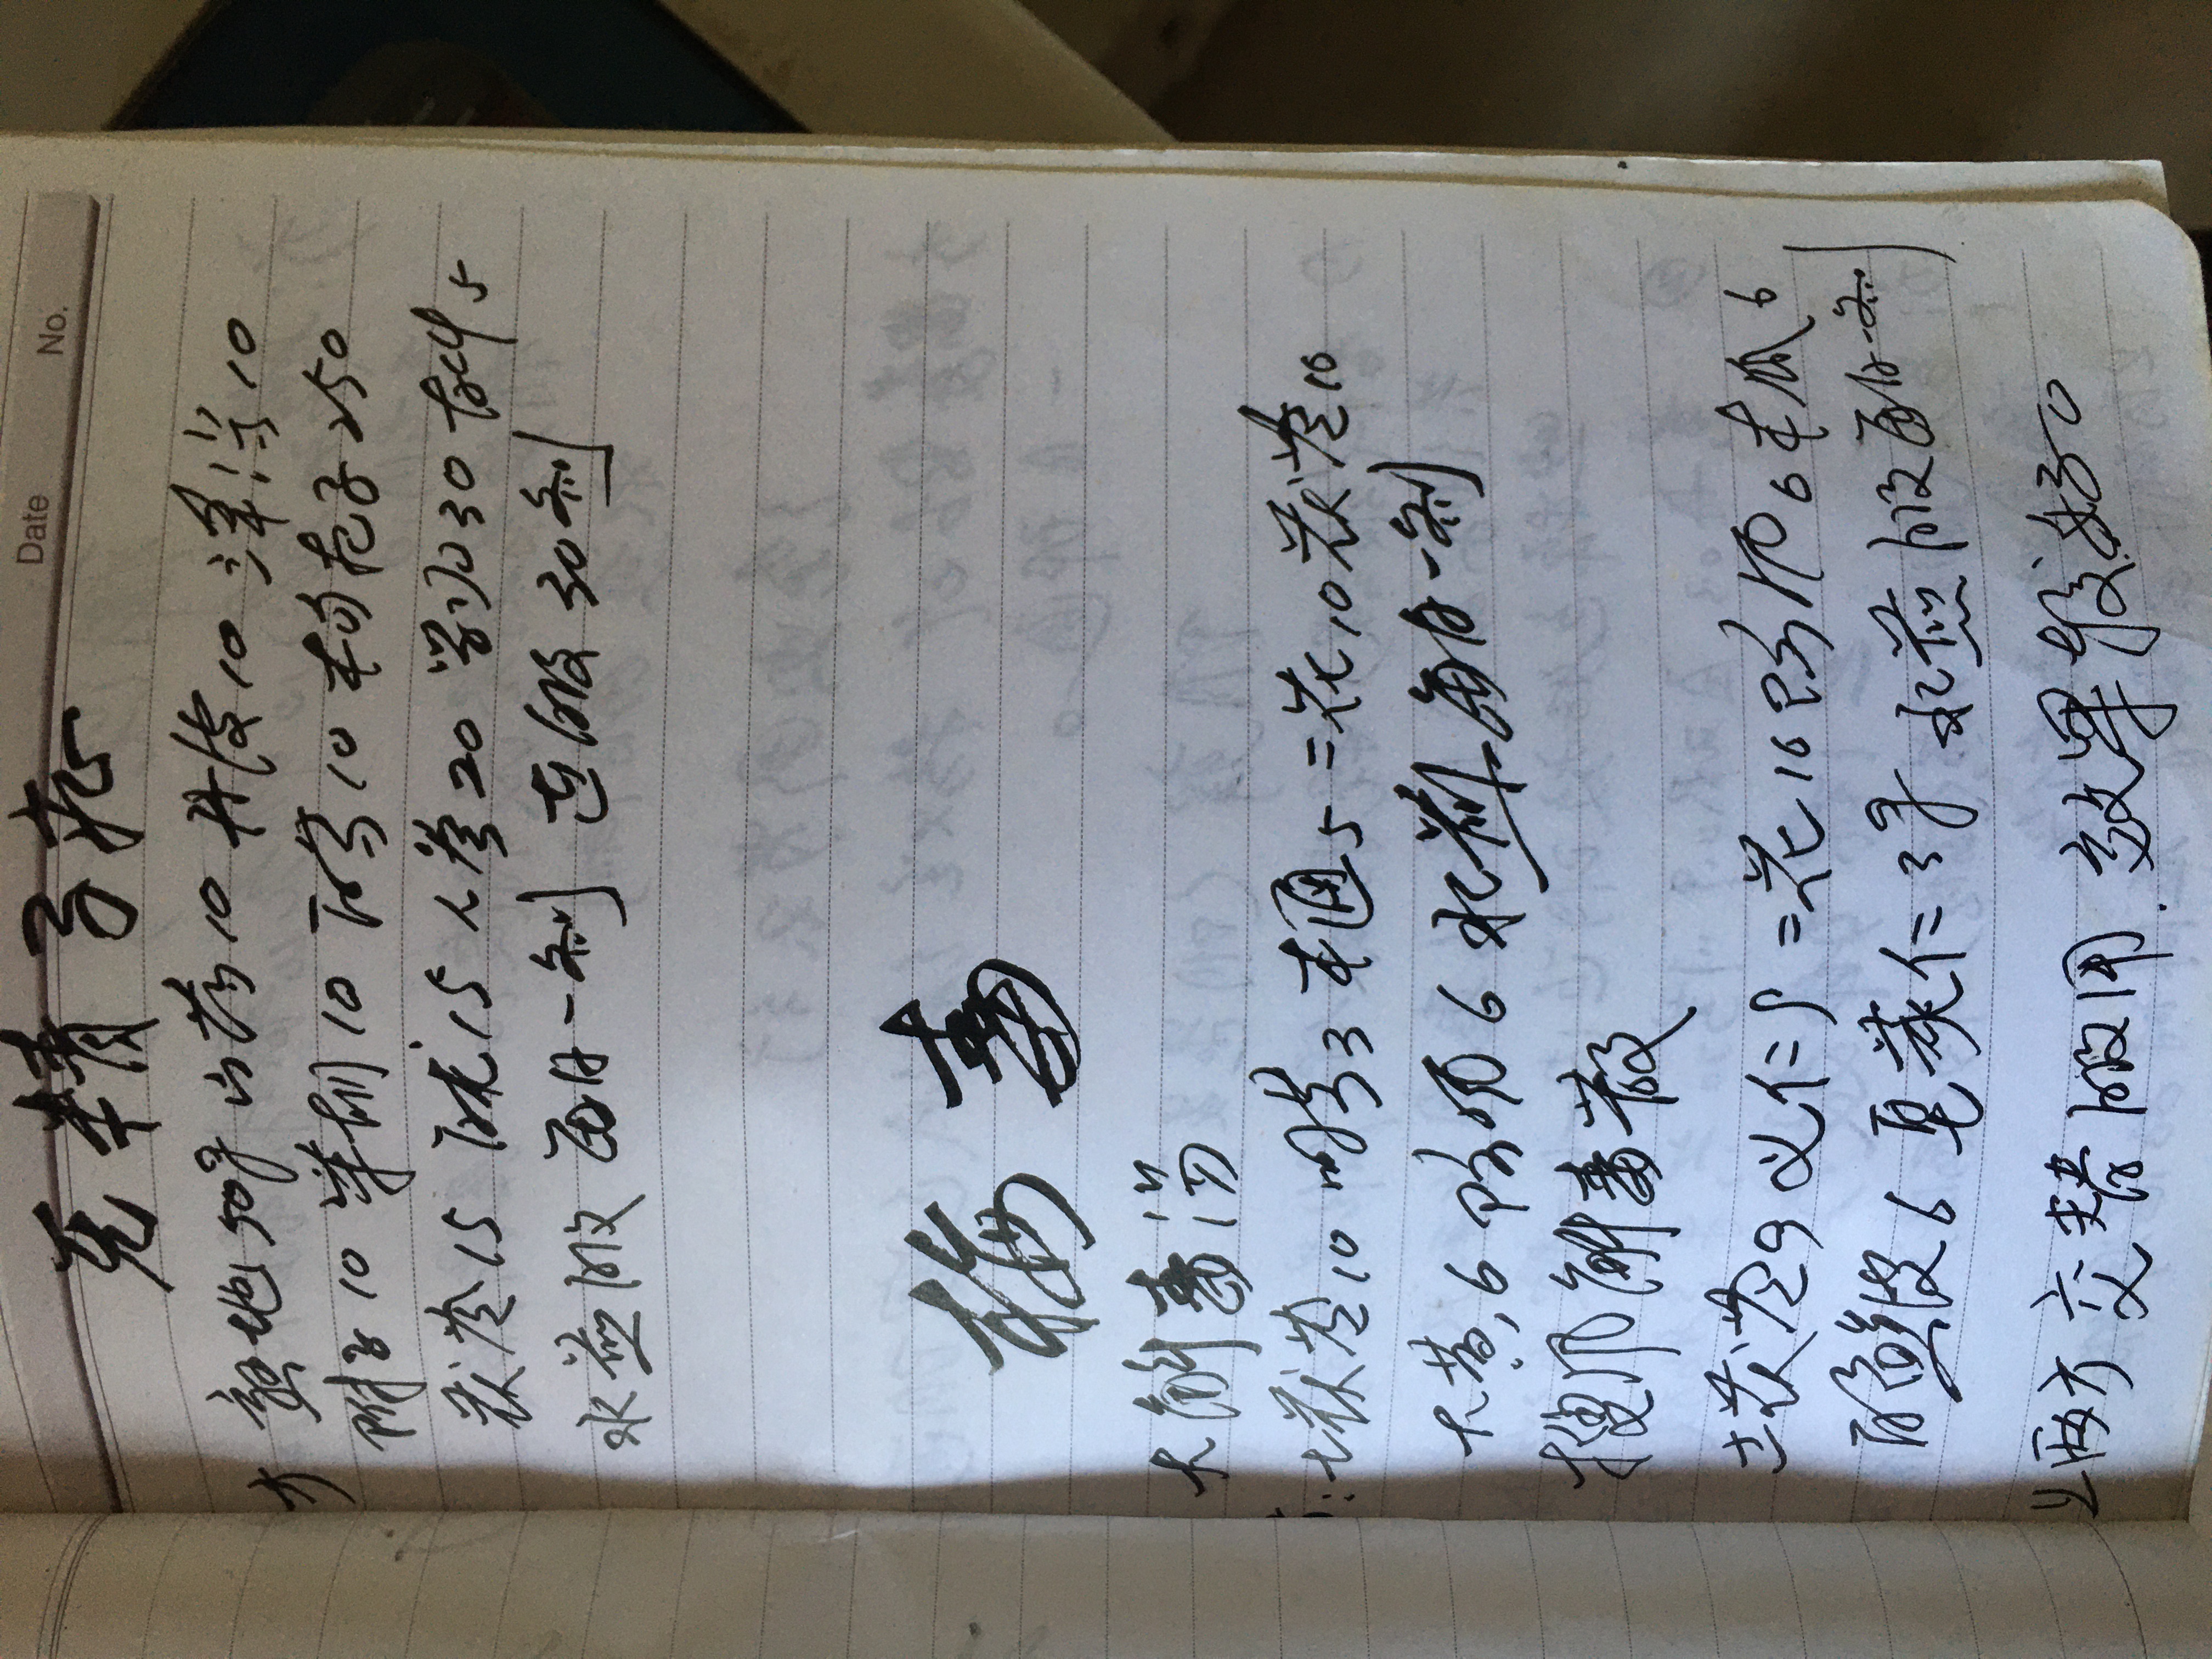 Date No.
无精子症
方 熟地50克 山药10 丹皮10 泽泻10
附子10 10 白芍10 枸杞子250
茯苓15 白术15 人参20 30 5
水煎服 每日一剂 连服30剂
梅毒
大解毒汤
:土茯苓10 川芎3 木通5 二花10 茯苓10
大黄6 防风6 水煎 每日一剂
搜风解毒散
土茯苓9 义仁9 二花10 防风6 木瓜6
白鲜皮6 皂荚仁3克 水煎服 每日一剂
以两方交替服用.效果较好。